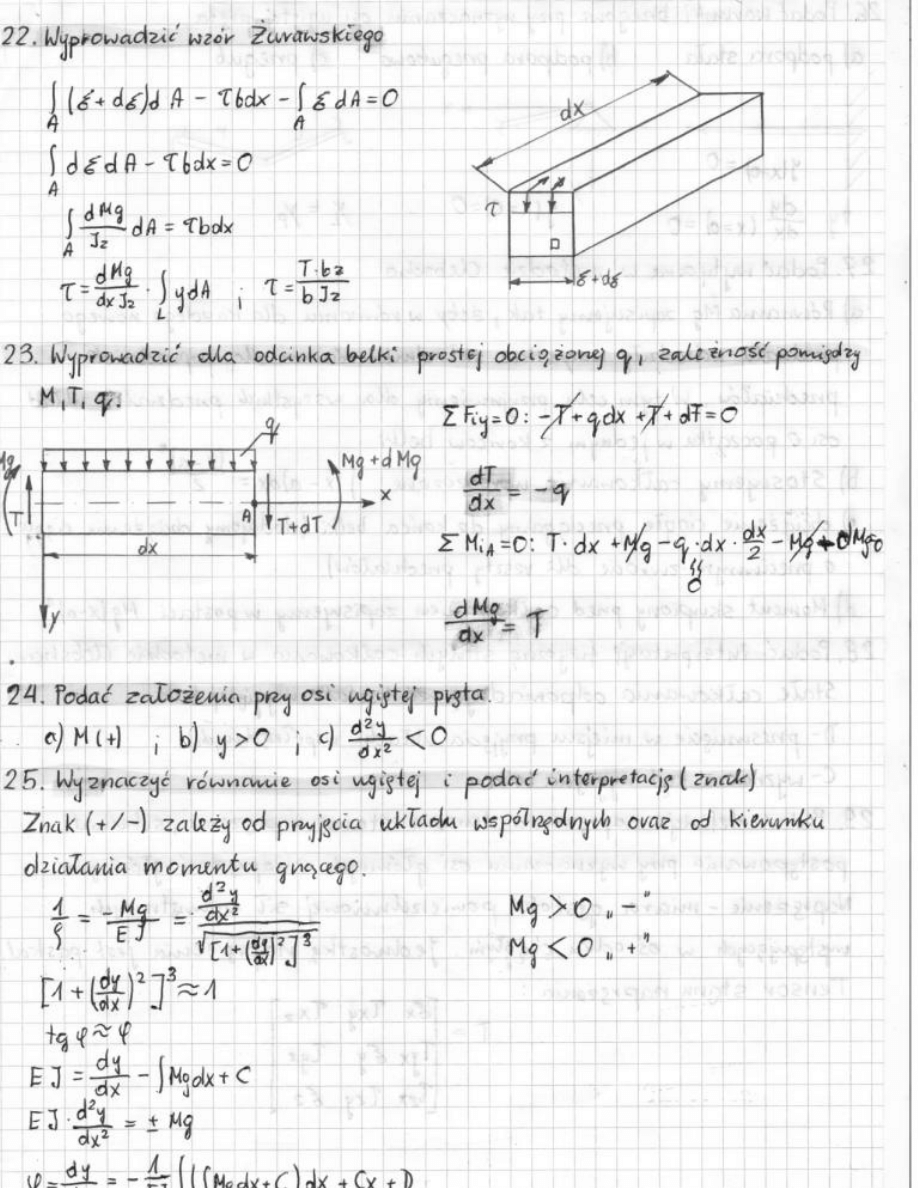 22. Wyprowadzić wzór Żurawskiego
∫_A (ε+dε)dA − τbdx − ∫_A εdA = 0
∫_A dεdA − τbdx = 0
∫_A dMg/Jz dA = τbdx
τ = dMg/dxJz · ∫_L ydA ; τ = T·bz/bJz
dx
τ
ε+dε
23. Wyprowadzić dla odcinka belki prostej obciążonej q, zależność pomiędzy
M, T, q.
q
Mg
Mg+dMg
x
T
A
T+dT
dx
y
ΣFiy=0: −T+qdx+T+dT=0
dT/dx = − q
ΣMiA=0: T·dx+Mg−q·dx·dx/2−Mg+dMg=0
0
dMg/dx = T
24. Podać założenia przy osi ugiętej pręta.
a) M(+) ; b) y>0 ; c) d²y/dx² < 0
25. Wyznaczyć równanie osi ugiętej i podać interpretację (znak)
Znak (+/−) zależy od przyjęcia układu współrzędnych oraz od kierunku
działania momentu gnącego.
1/ρ = −Mg/EJ = (d²y/dx²)/√[1+(dy/dx)²]³
Mg > 0 „−"
Mg < 0 „+"
[1+(dy/dx)²]³ ≈ 1
tg φ ≈ φ
EJ = dy/dx − ∫Mgdx + C
EJ·d²y/dx² = ± Mg
φ = dy/dx = − 1/EJ ∫(∫(Mgdx+C)dx + Cx + D